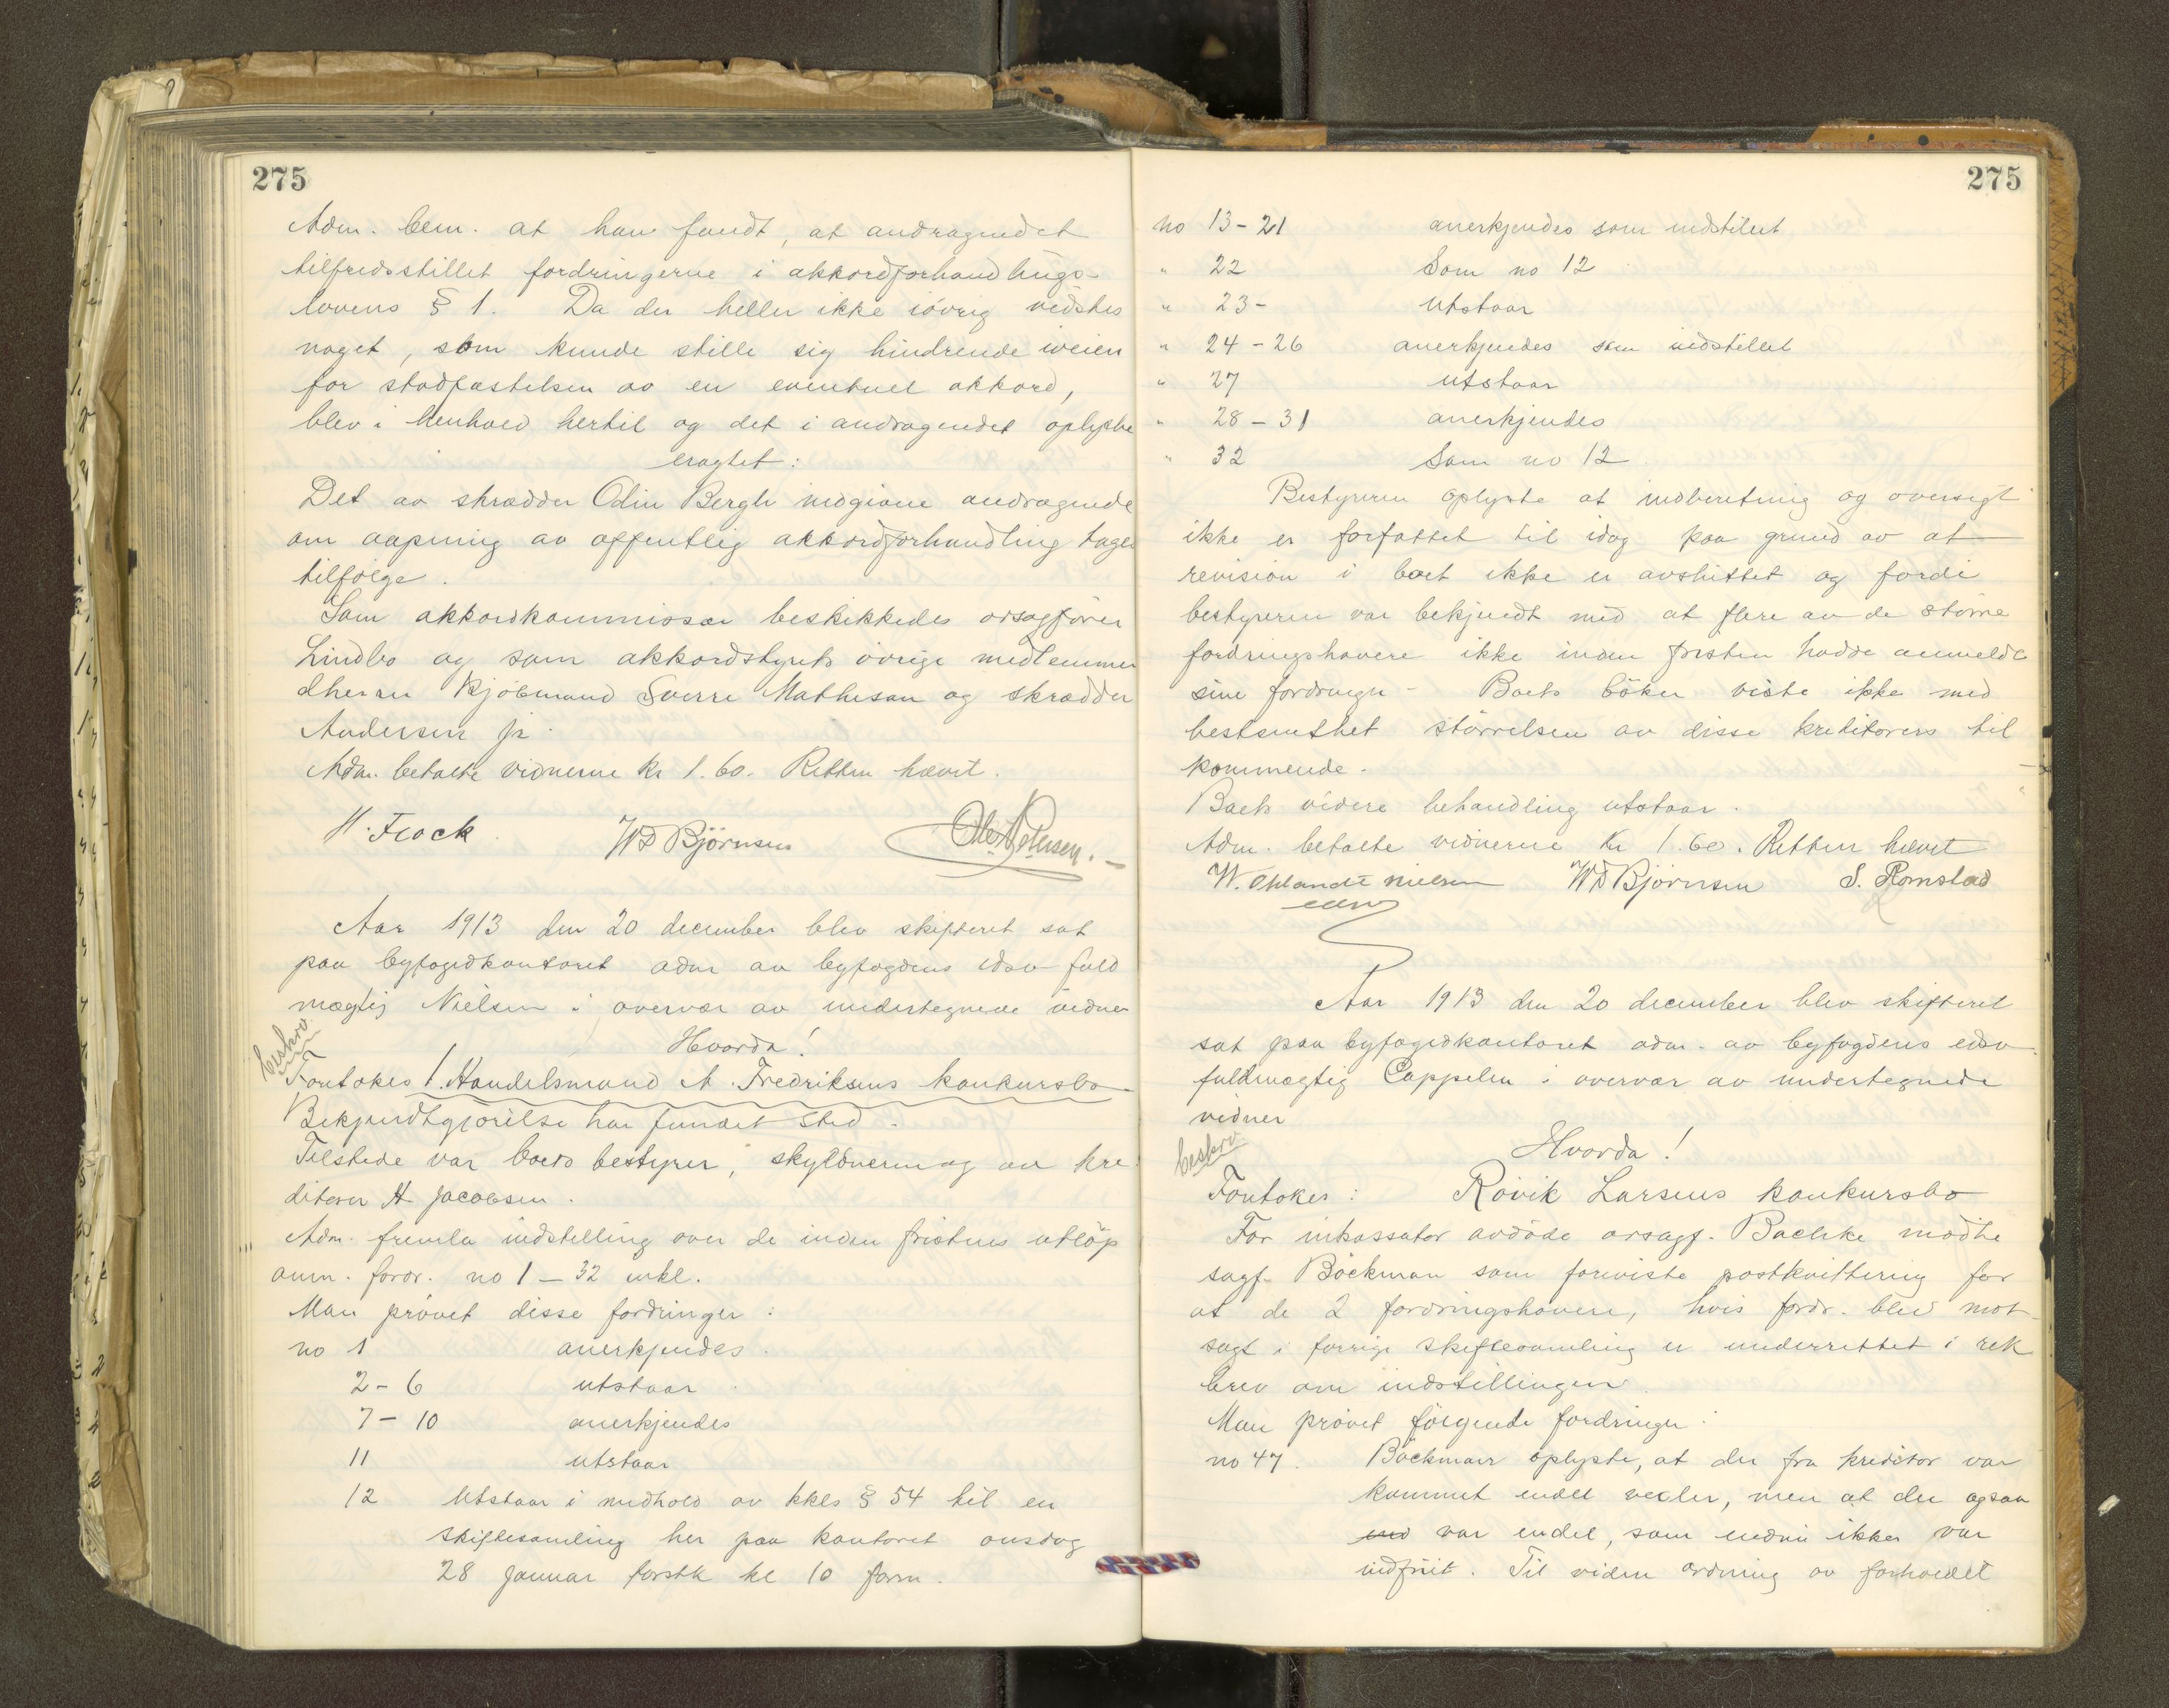 275
Adm. bem. at han fandt, at andragendet
tilfredsstillet fordringerne i akkordforhandlings-
lovens § 1. Da der heller ikke iövrig vidstes
noget, som kunde stille sig hindrende iveien
for stadfæstelsen av en eventuel akkord,
blev i henhold hertil og det i andragendet oplyste
eragtet:
Det av skrædder Odin Bergh indgivne andragende
om aapning av offentlig akkordforhandling tages
tilfölge.
Som akkordkommissær beskikkedes orsagförer
Lindbo og som akkordstyrets övrige medlemmer
dherrer kjöbmand Sverre Mathisen og skrædder
Andersen jr.
Adm. betalte vidnerne kr 1.60. Retten hævet.
H. Flock W D Björnsen Ole A Petersen.
Aar 1913 den 20 december blev skifteret sat
paa byfogedkontoret adm av byfogdens edsv fuld
mægtig Nielsen i overvær av undertegnede vidner
Hvorda!
beskrv
Foretokes 1. Handelsmand A. Fredriksens konkursbo
Bekjendtgjörelse har fundet sted.
Tilstede var boets bestyrer, skyldneren og av kre
ditorer A Jacobsen.
Adm. fremla indstelling over de inden fristens utlöp
anm. fordr. no 1 – 32 inkl.
Man prövet disse fordringer:
no 1 anerkjendes.
2 - 6 utstaar
7 – 10 anerkjendes
11 utstaar
12 Utstaar i medhold av kkls § 54 til en
skiftesamling her paa kontoret onsdag
28 januar förstk kl 10 form.
275
no 13 – 21 anerkjendes som indstillet
" 22 Som no 12
" 23 - utstaar
" 24 – 26 anerkjendes som indstillet
" 27 utstaar
" 28 – 31 anerkjendes
" 32 Som no 12
Bestyreren oplyste at indberetning og oversigt
ikke er forfattet til idag paa grund av at
revision i boet ikke er avsluttet og fordi
bestyreren var bekjendt med at flere av de större
fordringshavere ikke inden fristen hadde anmeldt
sine fordringer - Boets böker viste ikke med
bestemthet störrelsen av disse kreditorers til
kommende.
Boets videre behandling utstaar.
Adm. betalte vidnerne kr 1.60. Retten hævet
W. Ohlandt Nielsen W D Björnsen S. Romstad
edsv
Aar 1913 den 20 december blev skifteret
sat paa byfogedkontoret adm. av byfogdens edsv.
fuldmægtig Cappelen i overvær av undertegnede
vidner
Hvorda!
beskrv
Foretokes: Rövik Larsens konkursbo
For inkassator avdöde orsagf. Bachke mödte
sagf. Böckman som foreviste postkvittering for
at de 2 fordringshavere, hvis fordr. blev mot-
sagt i forrige skiftesamling er underrettet i rek
brev om indstillingen.
Man prövet fölgende fordringer:
no 47. Böckman oplyste, at der fra kreditor var
kommet endel veksler, men at der ogsaa
var endel, som endnu ikke var
indfriet. Til viden ordning av forholdet